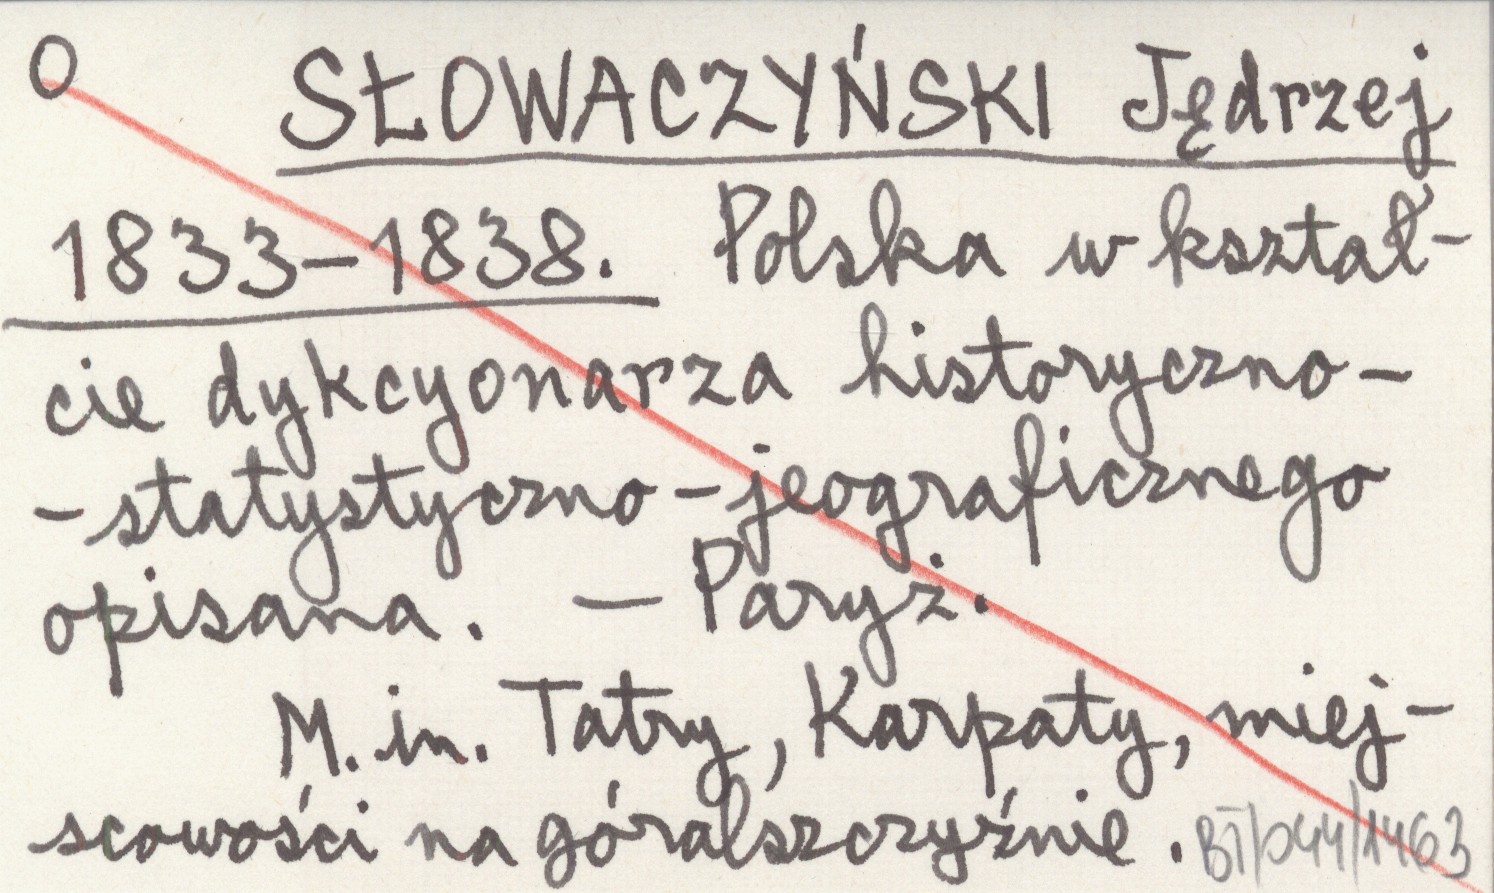 O SŁOWACZYŃSKI Jędrzej
1833-1838. Polska w kształ-
cie dykcyonarza historyczno-
-statystyczno-jeograficznego
opisana. - Paryż.
M. in. Tatry, Karpaty, miej-
scowości na góralszczyźnie.